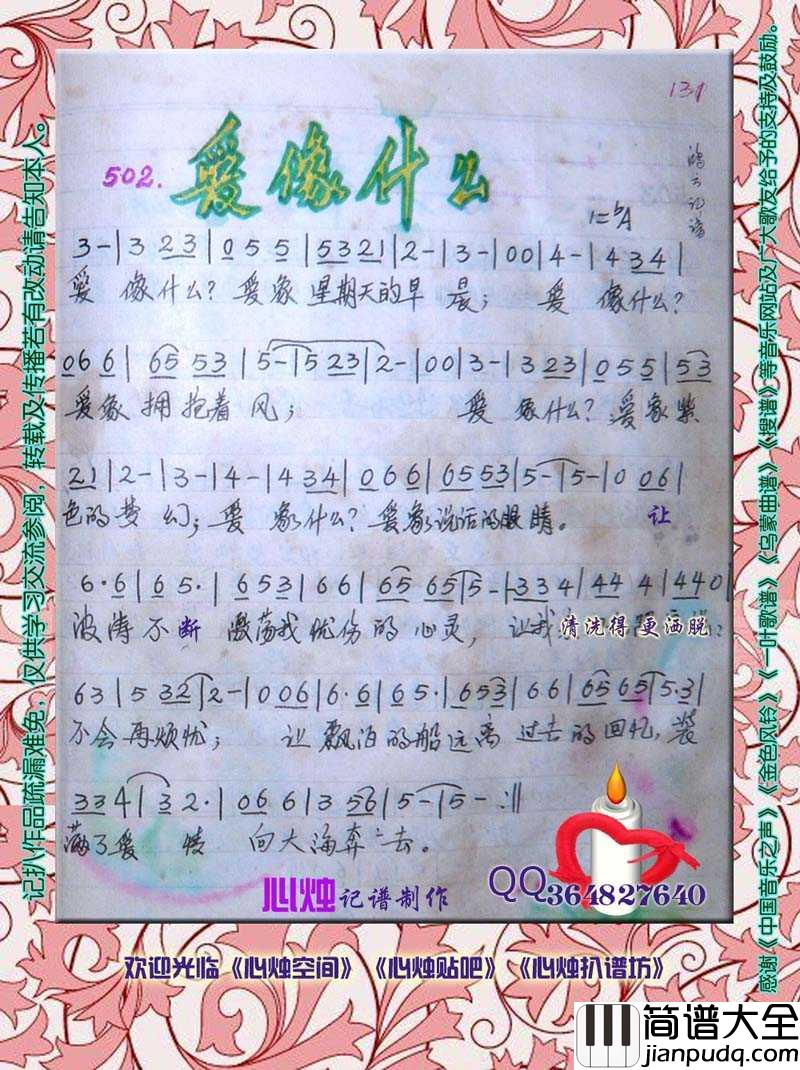 131
502. 爱像什么
鸿云记谱
1=♭A
3-|3 23|055|5321|2-|3-|00|4-|434|
爱 像什么? 爱象 星期天的早 晨; 爱 像什么?
066|6553|5-|523|2-|00|3-|323|055|53
爱象 拥抱着 风; 爱 象什么? 爱象紫
21|2-|3-|4-|434|066|6553|5-|5-|0 06|
色的梦 幻; 爱 象什么? 爱象说话的眼睛。 让
6·6|65·|653|66|65 65|5-|334|44 4|440|
波涛不断 激荡我忧伤的 心灵, 让我 清洗得 更洒脱
63|532|2-|006|6·6|65·|653|66|65 65|5·3|
不会再烦忧; 让 飘泊的船远离 过去的回忆, 装
334|32·|066|356|5-|5-:‖
满了爱 情 向大海奔 去。
心烛记谱制作
QQ364827640
欢迎光临《心烛空间》《心烛贴吧》《心烛扒谱坊》
记扒作品疏漏难免，仅供学习交流参阅，转载及传播若有改动请告知本人。
感谢《中国音乐之声》《金色风铃》《一叶歌谱》《乌蒙曲谱》《搜谱》等音乐网站及广大歌友给予的支持及鼓励。
简谱大全
jianpudq.com